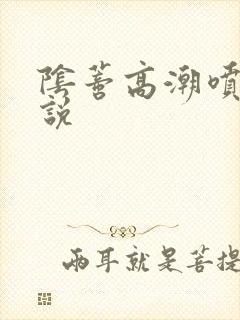 陰蒂高潮噴
說
兩耳就是菩提